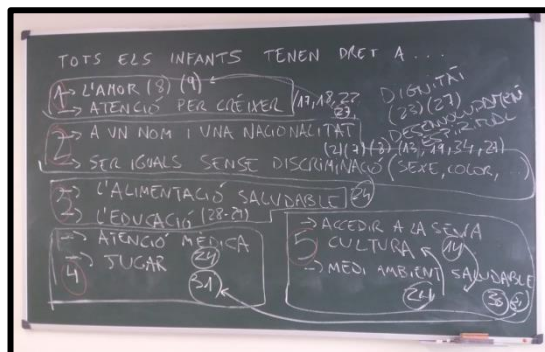 TOTS ELS INFANTS TENEN DRET A...
1 → L'AMOR (8) (9)
→ ATENCIÓ PER CRÉIXER 17, 18, 22
27,
DIGNITAT
(23) (27)
2 → A UN NOM I UNA NACIONALITAT
(2) (7) (8) (13, 19, 34, 27)
→ SER IGUALS SENSE DISCRIMINACIÓ (SEXE, COLOR, ...)
3 → L'ALIMENTACIÓ SALUDABLE 24
→ L'EDUCACIÓ (28-29)
4 → ATENCIÓ MÈDICA
24
→ JUGAR
31
5 → ACCEDIR A LA SEVA
CULTURA 14
→ MEDI AMBIENT SALUDABLE
24